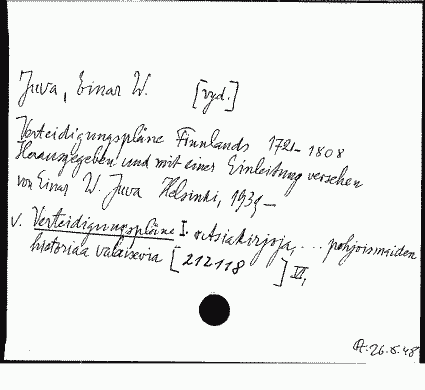 Juva, Einar W. [vyd.]
Verteidigungspläne Finnlands 1721-1808
Herausgegeben und mit einer Einleitung versehen
von Einar W. Juva Helsinki, 1939-
v. Verteidigungspläne I. Asiakirjoja, ... pohjoismaiden
historiaa valaisevia [212118 ] VI,
26.5.48